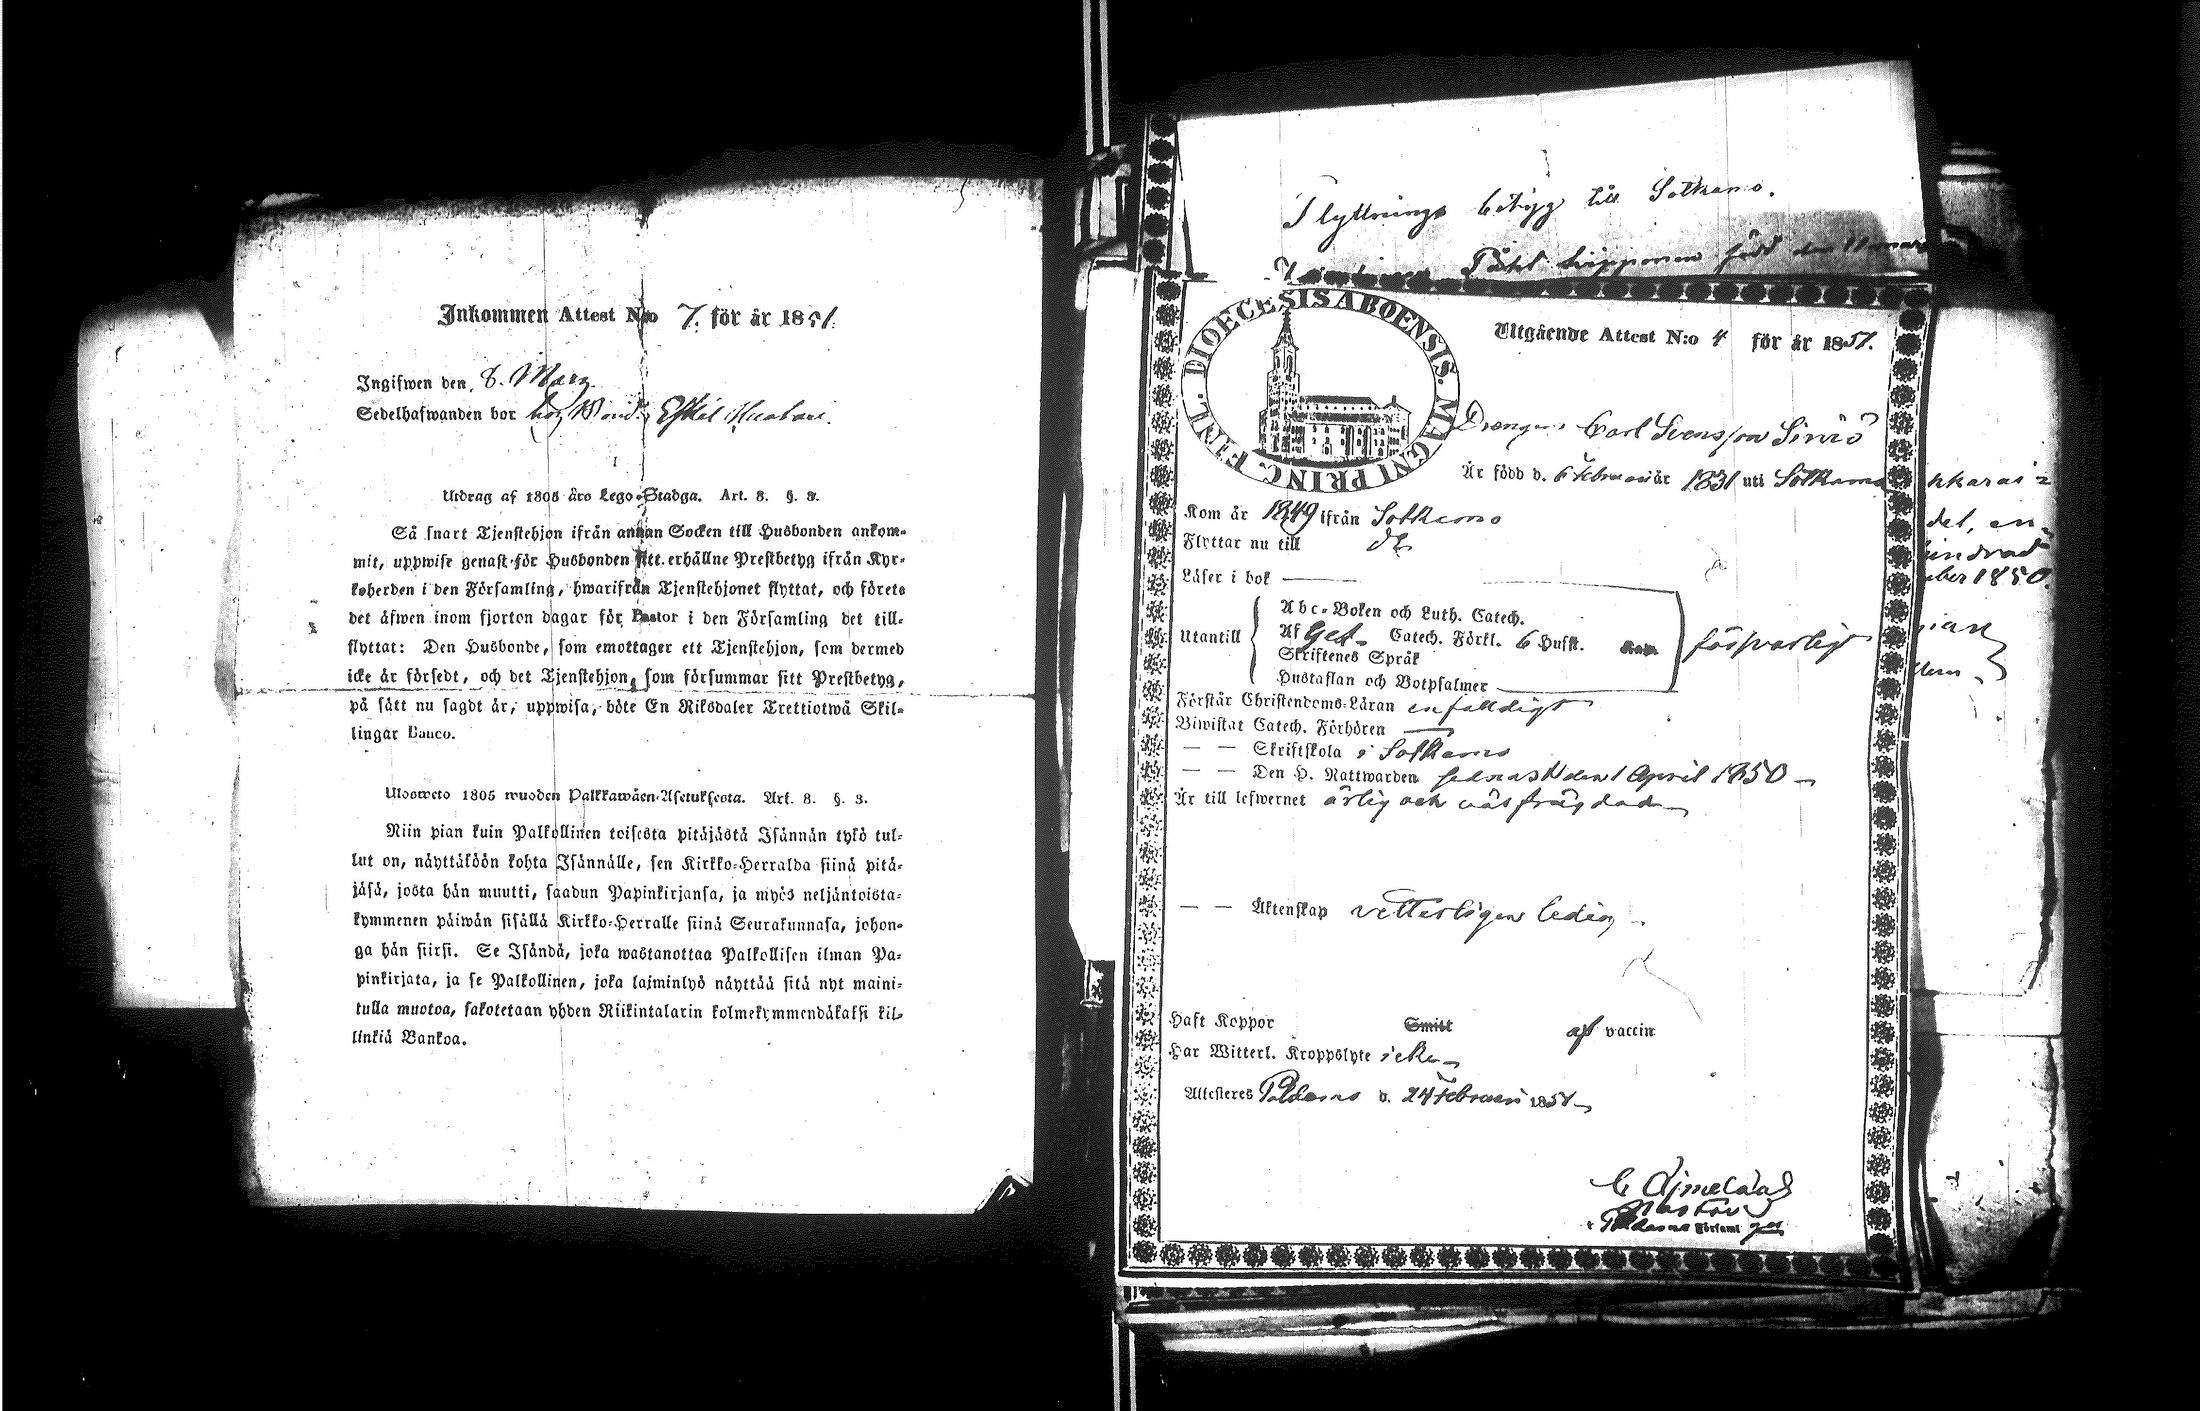 Inkommen Attest N:o 7. för år 1851.
Ingifwen den 8. Marz
Sedelhafwanden bor hos Bond.
Utdrag af 1805 års Lego-Stadga. Art. 3. §. 3.
Så snart Tjenstehjon ifrån annan Socken till Husbonden ankom-
mit, uppwise genast för Husbonden sitt erhållne Prestbetyg ifrån Kyr-
koherden i den Församling, hwarifrån Tjenstehjonet flyttat, och förete
det äfwen inom fjorton dagar för Pastor i den Församling det till-
flyttat: Den Husbonde, som emottager ett Tjenstehjon, som dermed
icke är försedt, och det Tjenstehjon, som försummar sitt Prestbetyg,
på sätt nu sagdt är, uppwisa, böte En Riksdaler Trettiotwå Skil-
lingar Banco.
Ulosweto 1805 wuoden Palkkawäen-Asetuksesta. Art. 3. §. 3.
Niin pian kuin Palkollinen toisesta pitäjästä Isännän tykö tul-
lut on, näyttäköön kohta Isännälle, sen Kirkko-Herralda siinä pitä-
jäsä, josta hän muutti, saadun Papinkirjansa, ja myös neljäntoista-
kymmenen päiwän sisällä Kirkko-Herralle siinä Seurakunnasa, johon-
ga hän siirsi. Se Isändä, joka wastanottaa Palkollisen ilman Pa-
pinkirjata, ja se Palkollinen, joka laiminlyö näyttää sitä nyt maini-
tulla muotoa, sakotetaan yhden Riikintalarin kolmekymmendäkaksi kil-
linkiä Bankoa.
Flyttnings betyg till Sotkamo.
född den 11 mars
DIOECESIS ABOENSIS. MAGNI PRINC. FINL.
Utgående Attest N:o 4 för år 1851.
Drängen Carl Svensson
Är född d. 6 Februari år 1831 uti Sotkamo
Kom år 1849 ifrån Sotkamo
Flyttar nu till
Läser i bok
Utantill
Abc-Boken och Luth. Catech.
Af Ged. Catech. Förkl. 6 Hufst.
Skriftenes Språk
Hustaflan och Botpsalmer
försvarligt
Förstår Christendoms-Läran enfaldigt
Biwistat Catech. Förhören
— — Skriftskola i Sotkamo
— — Den H. Nattwarden sednast den 1 April 1850
Är till lefwernet ärlig och väl frägdad
— — Äktenskap vetterligen ledig
Haft Koppor Smitt af vaccin
Har Witterl. Kroppslyte icke
Attesteres Paldamo d. 24 Februari 1851
Pastor
i Paldamo Församl